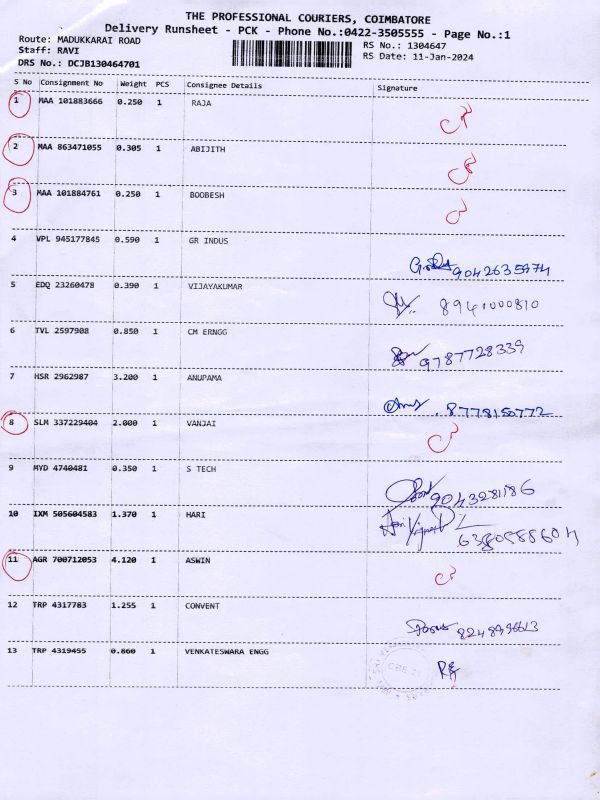 THE PROFESSIONAL COURIERS, COIMBATORE
Delivery Runsheet - PCK - Phone No.:0422-3505555 - Page No.:1
Route: MADUKKARAI ROAD RS No.: 1304647
Staff: RAVI RS Date: 11-Jan-2024
DRS No.: DCJB130464701
S No Consignment No Weight PCS Consignee Details Signature
1 MAA 101883666 0.250 1 RAJA
2 MAA 863471055 0.305 1 ABIJITH
3 MAA 101884761 0.250 1 BOOBESH
4 VPL 945177845 0.590 1 GR INDUS 9042635974
5 EDQ 23260478 0.390 1 VIJAYAKUMAR
6 TVL 2597908 0.850 1 CM ERNGG 9787728339
7 HSR 2962987 3.200 1 ANUPAMA 8778150772
8 SLM 337229404 2.000 1 VANJAI
9 MYD 4740481 0.350 1 S TECH 9043281186
10 IXM 505604583 1.370 1 HARI
11 AGR 700712053 4.120 1 ASWIN
12 TRP 4317783 1.255 1 CONVENT
13 TRP 4319455 0.860 1 VENKATESWARA ENGG